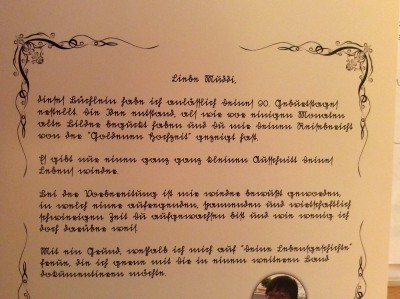 Liebe Muddi,
dieses Büchlein habe ich anlässlich deines 90. Geburtstages
erstellt. Die Idee entstand, als wir vor einigen Monaten
alte Bilder beguckt haben und du mir deinen Reisebericht
von der "Goldenen Hochzeit" gezeigt hast.
Es gibt nur einen ganz ganz kleinen Ausschnitt deines
Lebens wieder.
Bei der Vorbereitung ist mir wieder bewußt geworden,
in welch einer aufregenden, spannenden und wirtschaftlich
schwierigen Zeit du aufgewachsen bist und wie wenig ich
doch darüber weiß.
Mit ein Grund, weshalb ich mich auf "deine Lebensgeschichte"
freue, die ich gerne mit dir in einem weiteren Band
dokumentieren möchte.